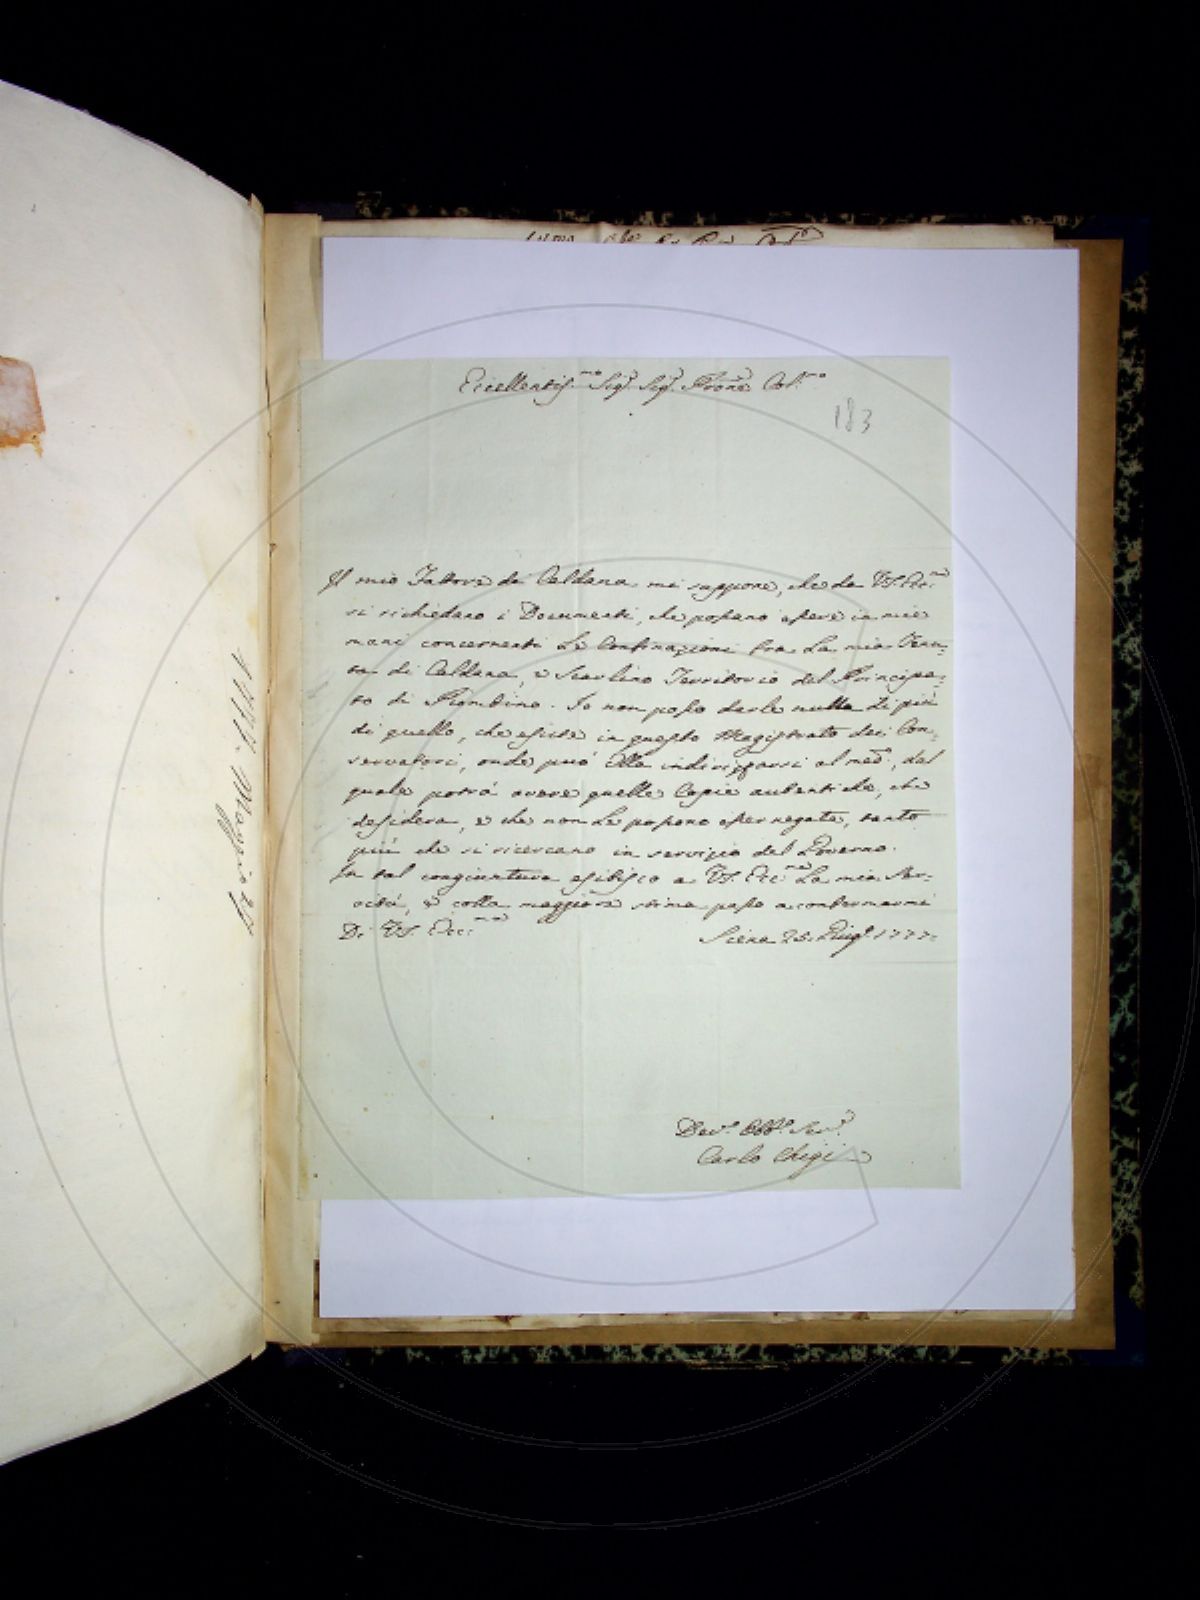 Eccellentis.mo Sig.r Sig.r Pròne Col.mo
183
Il mio Fattore di Caldana mi suppone, che da VS. Ecc.ma
si richiedano i Documenti, che possano essere in mie
mani concernenti le Confinazioni fra la mia Tenu-
ta di Caldana, e Scarlino Territorio del Principa-
to di Piombino. Io non posso darle nulla di più
di quello, che esiste in questo Magistrato dei Con-
servatori, onde può Ella indirizzarsi al med.o, dal
quale potrà avere quelle Copie autentiche, che
desidera, e che non le possono esser negate, tanto
più che si ricercano in servizio del Governo.
In tal congiuntura esibisco a VS. Ecc.ma la mia Ser-
vitù, e colla maggiore stima passo a confermarmi
Di VS. Ecc.ma
Siena 25. Giug.o 1777.
Dev.o Obb.o Ser.e
Carlo Chigi
1777. Maggio 29